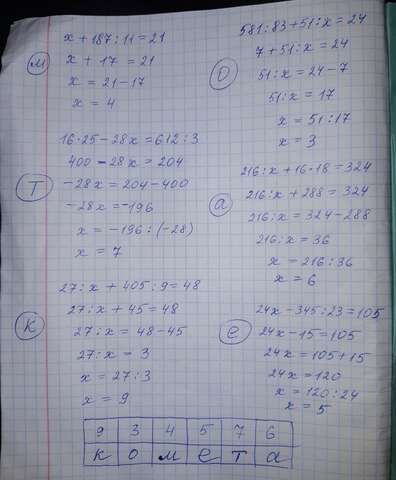 м
x + 187 : 11 = 21
x + 17 = 21
x = 21 - 17
x = 4
о
581 : 83 + 51 : x = 24
7 + 51 : x = 24
51 : x = 24 - 7
51 : x = 17
x = 51 : 17
x = 3
т
16 · 25 - 28x = 612 : 3
400 - 28x = 204
-28x = 204 - 400
-28x = -196
x = -196 : (-28)
x = 7
а
216 : x + 16 · 18 = 324
216 : x + 288 = 324
216 : x = 324 - 288
216 : x = 36
x = 216 : 36
x = 6
к
27 : x + 405 : 9 = 48
27 : x + 45 = 48
27 : x = 48 - 45
27 : x = 3
x = 27 : 3
x = 9
е
24x - 345 : 23 = 105
24x - 15 = 105
24x = 105 + 15
24x = 120
x = 120 : 24
x = 5
9 3 4 5 7 6
к о м е т а